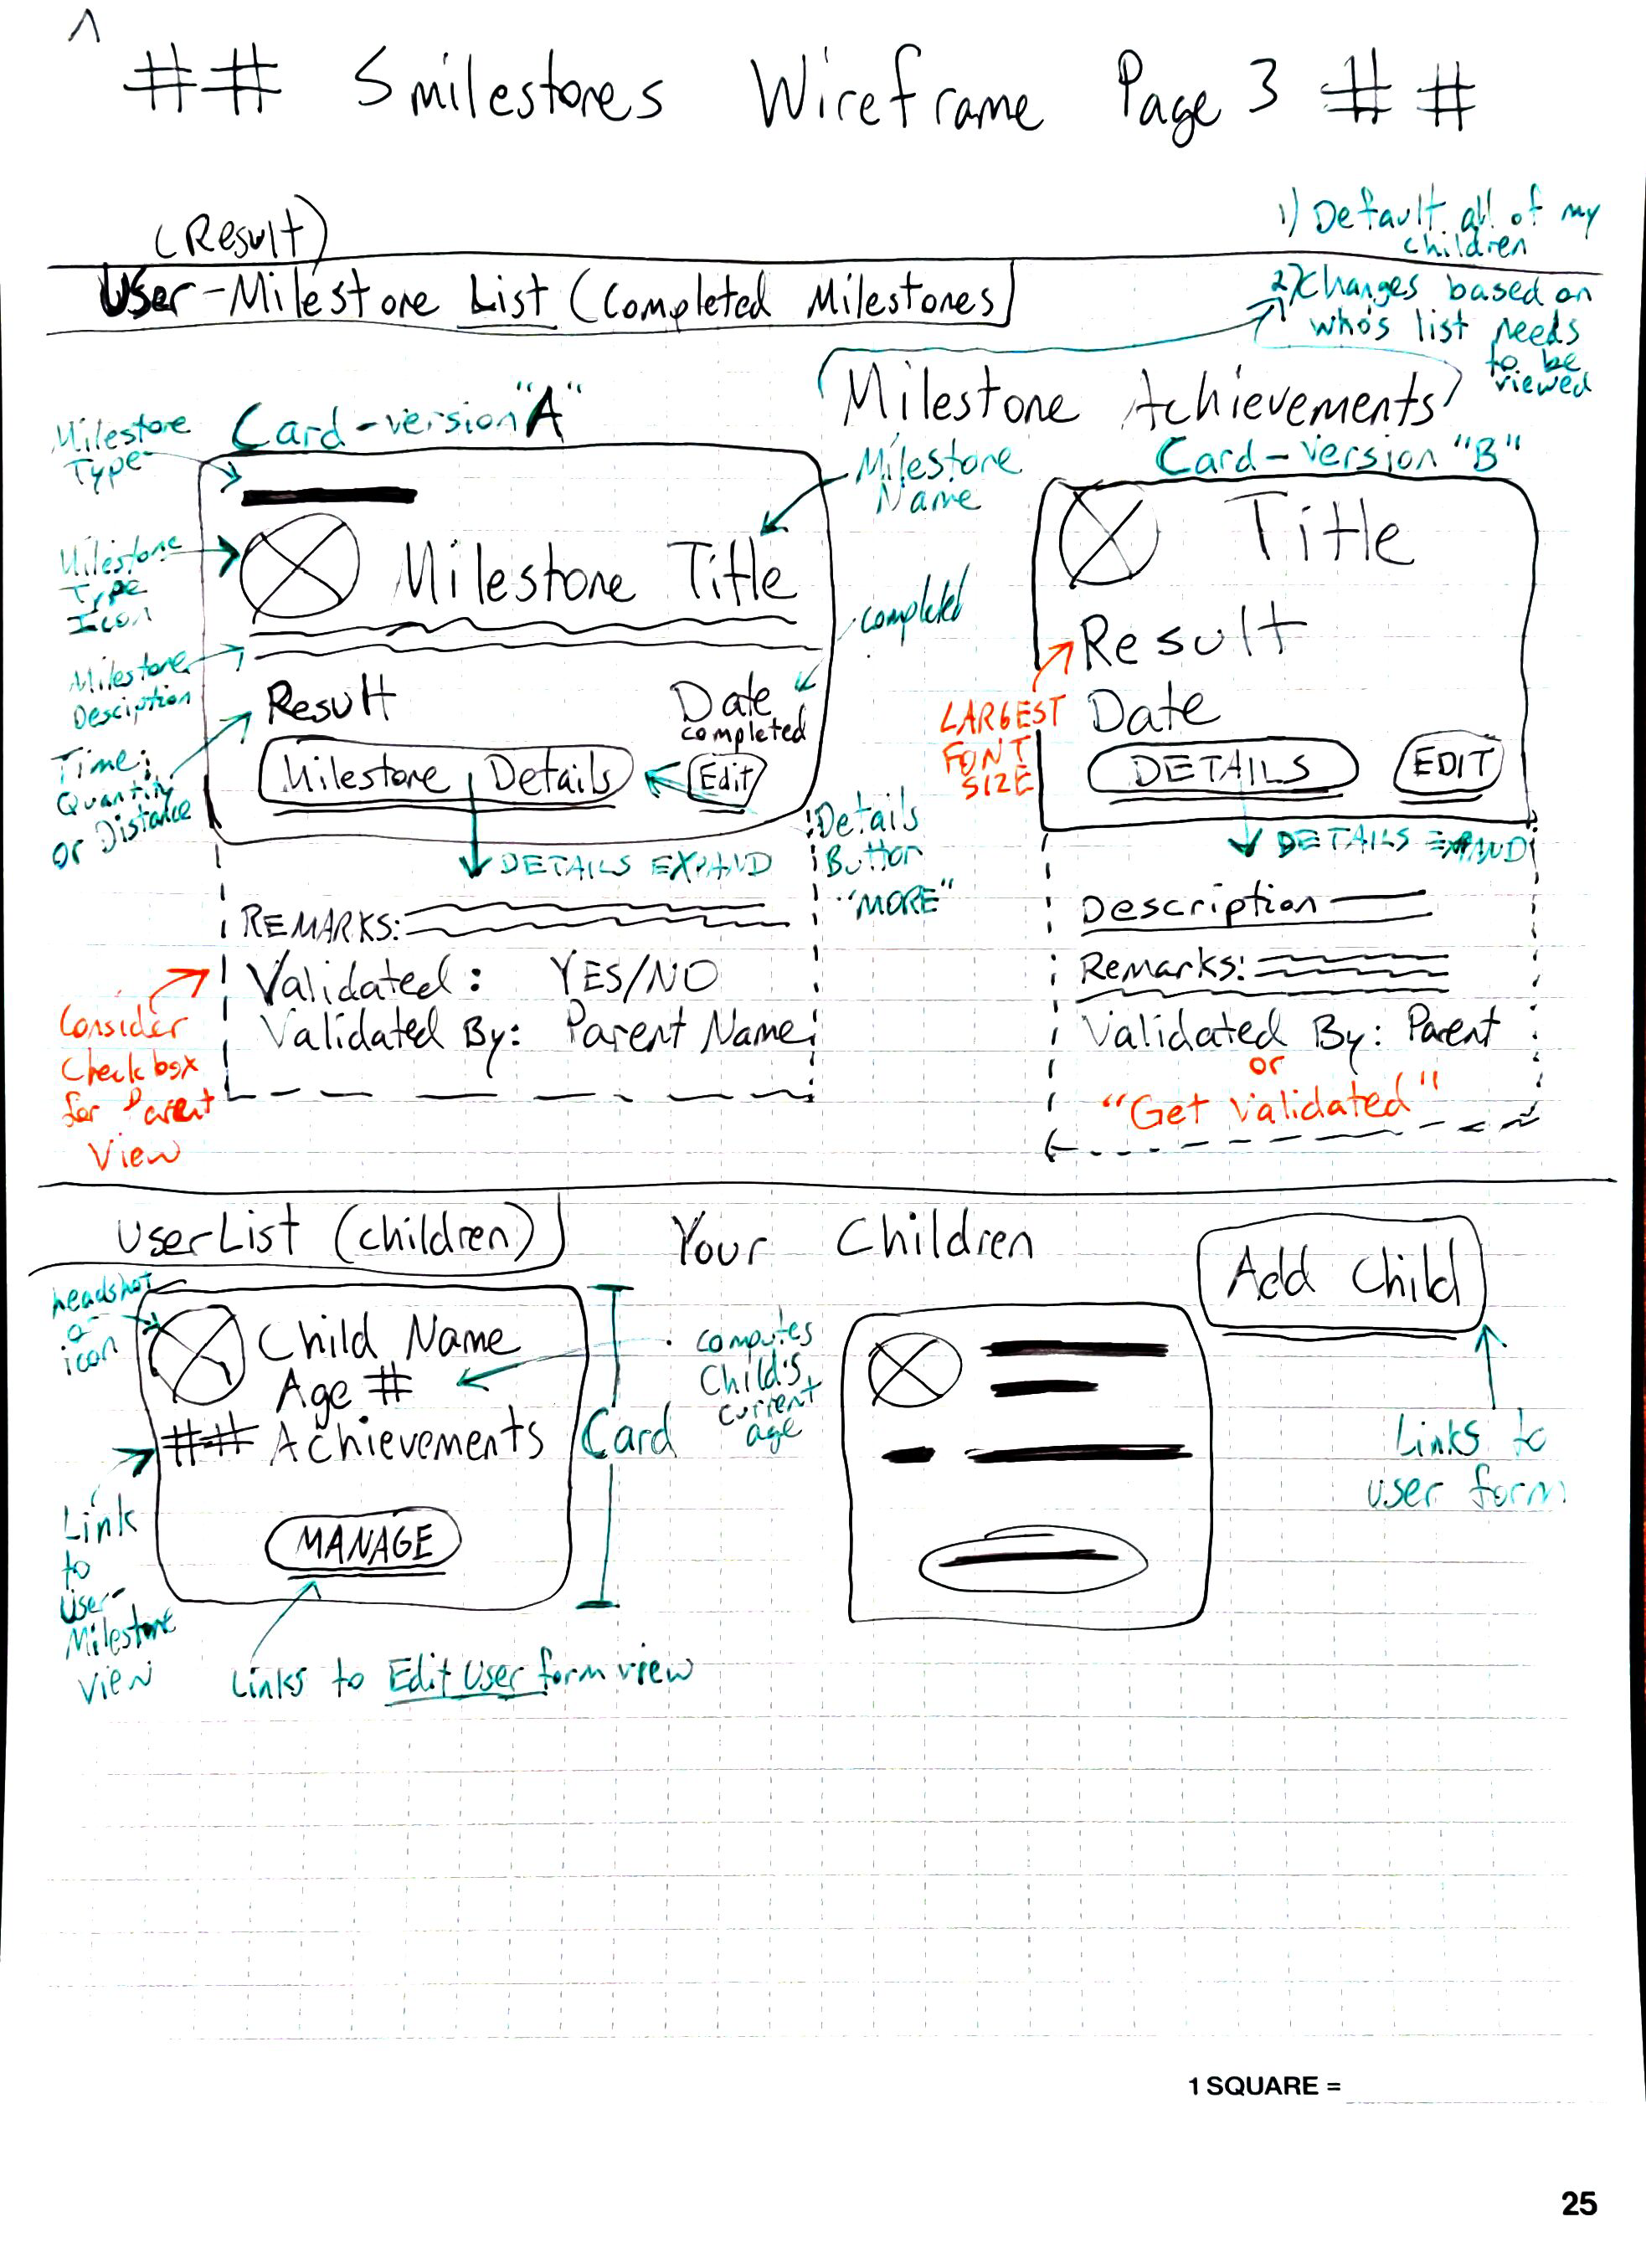 ## Smilestones Wireframe Page 3 ##
(Result)
User-Milestone List (Completed Milestones)
1) Default all of my
children
2) Changes based on
who's list needs
to be
viewed
Milestone Achievements
Card-version "A"
Milestone
Type
Milestone
Name
Milestone
Type
Icon
Milestone Title
completed
Milestone
Desciption
Result
Date
completed
Time,
Quantity
or Distance
Milestone Details
Edit
Details
Button
"MORE"
DETAILS EXPAND
REMARKS:
Validated: YES/NO
Validated By: Parent Name
Consider
Checkbox
for Parent
View
Card-version "B"
Title
Result
LARGEST
FONT
SIZE
Date
DETAILS
EDIT
DETAILS EXPAND
Description
Remarks:
Validated By: Parent
or
"Get Validated"
UserList (children)
Your Children
Add Child
headshot
icon
Child Name
Age #
## Achievements
MANAGE
computes
Child's
current
age
Card
Links to
user form
Link
to
User-
Milestone
View
Links to Edit User form view
1 SQUARE =
25